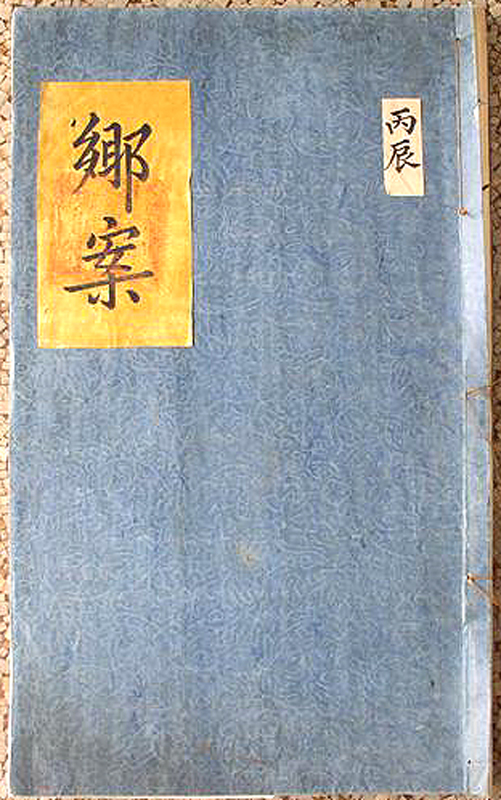 丙辰
鄉案